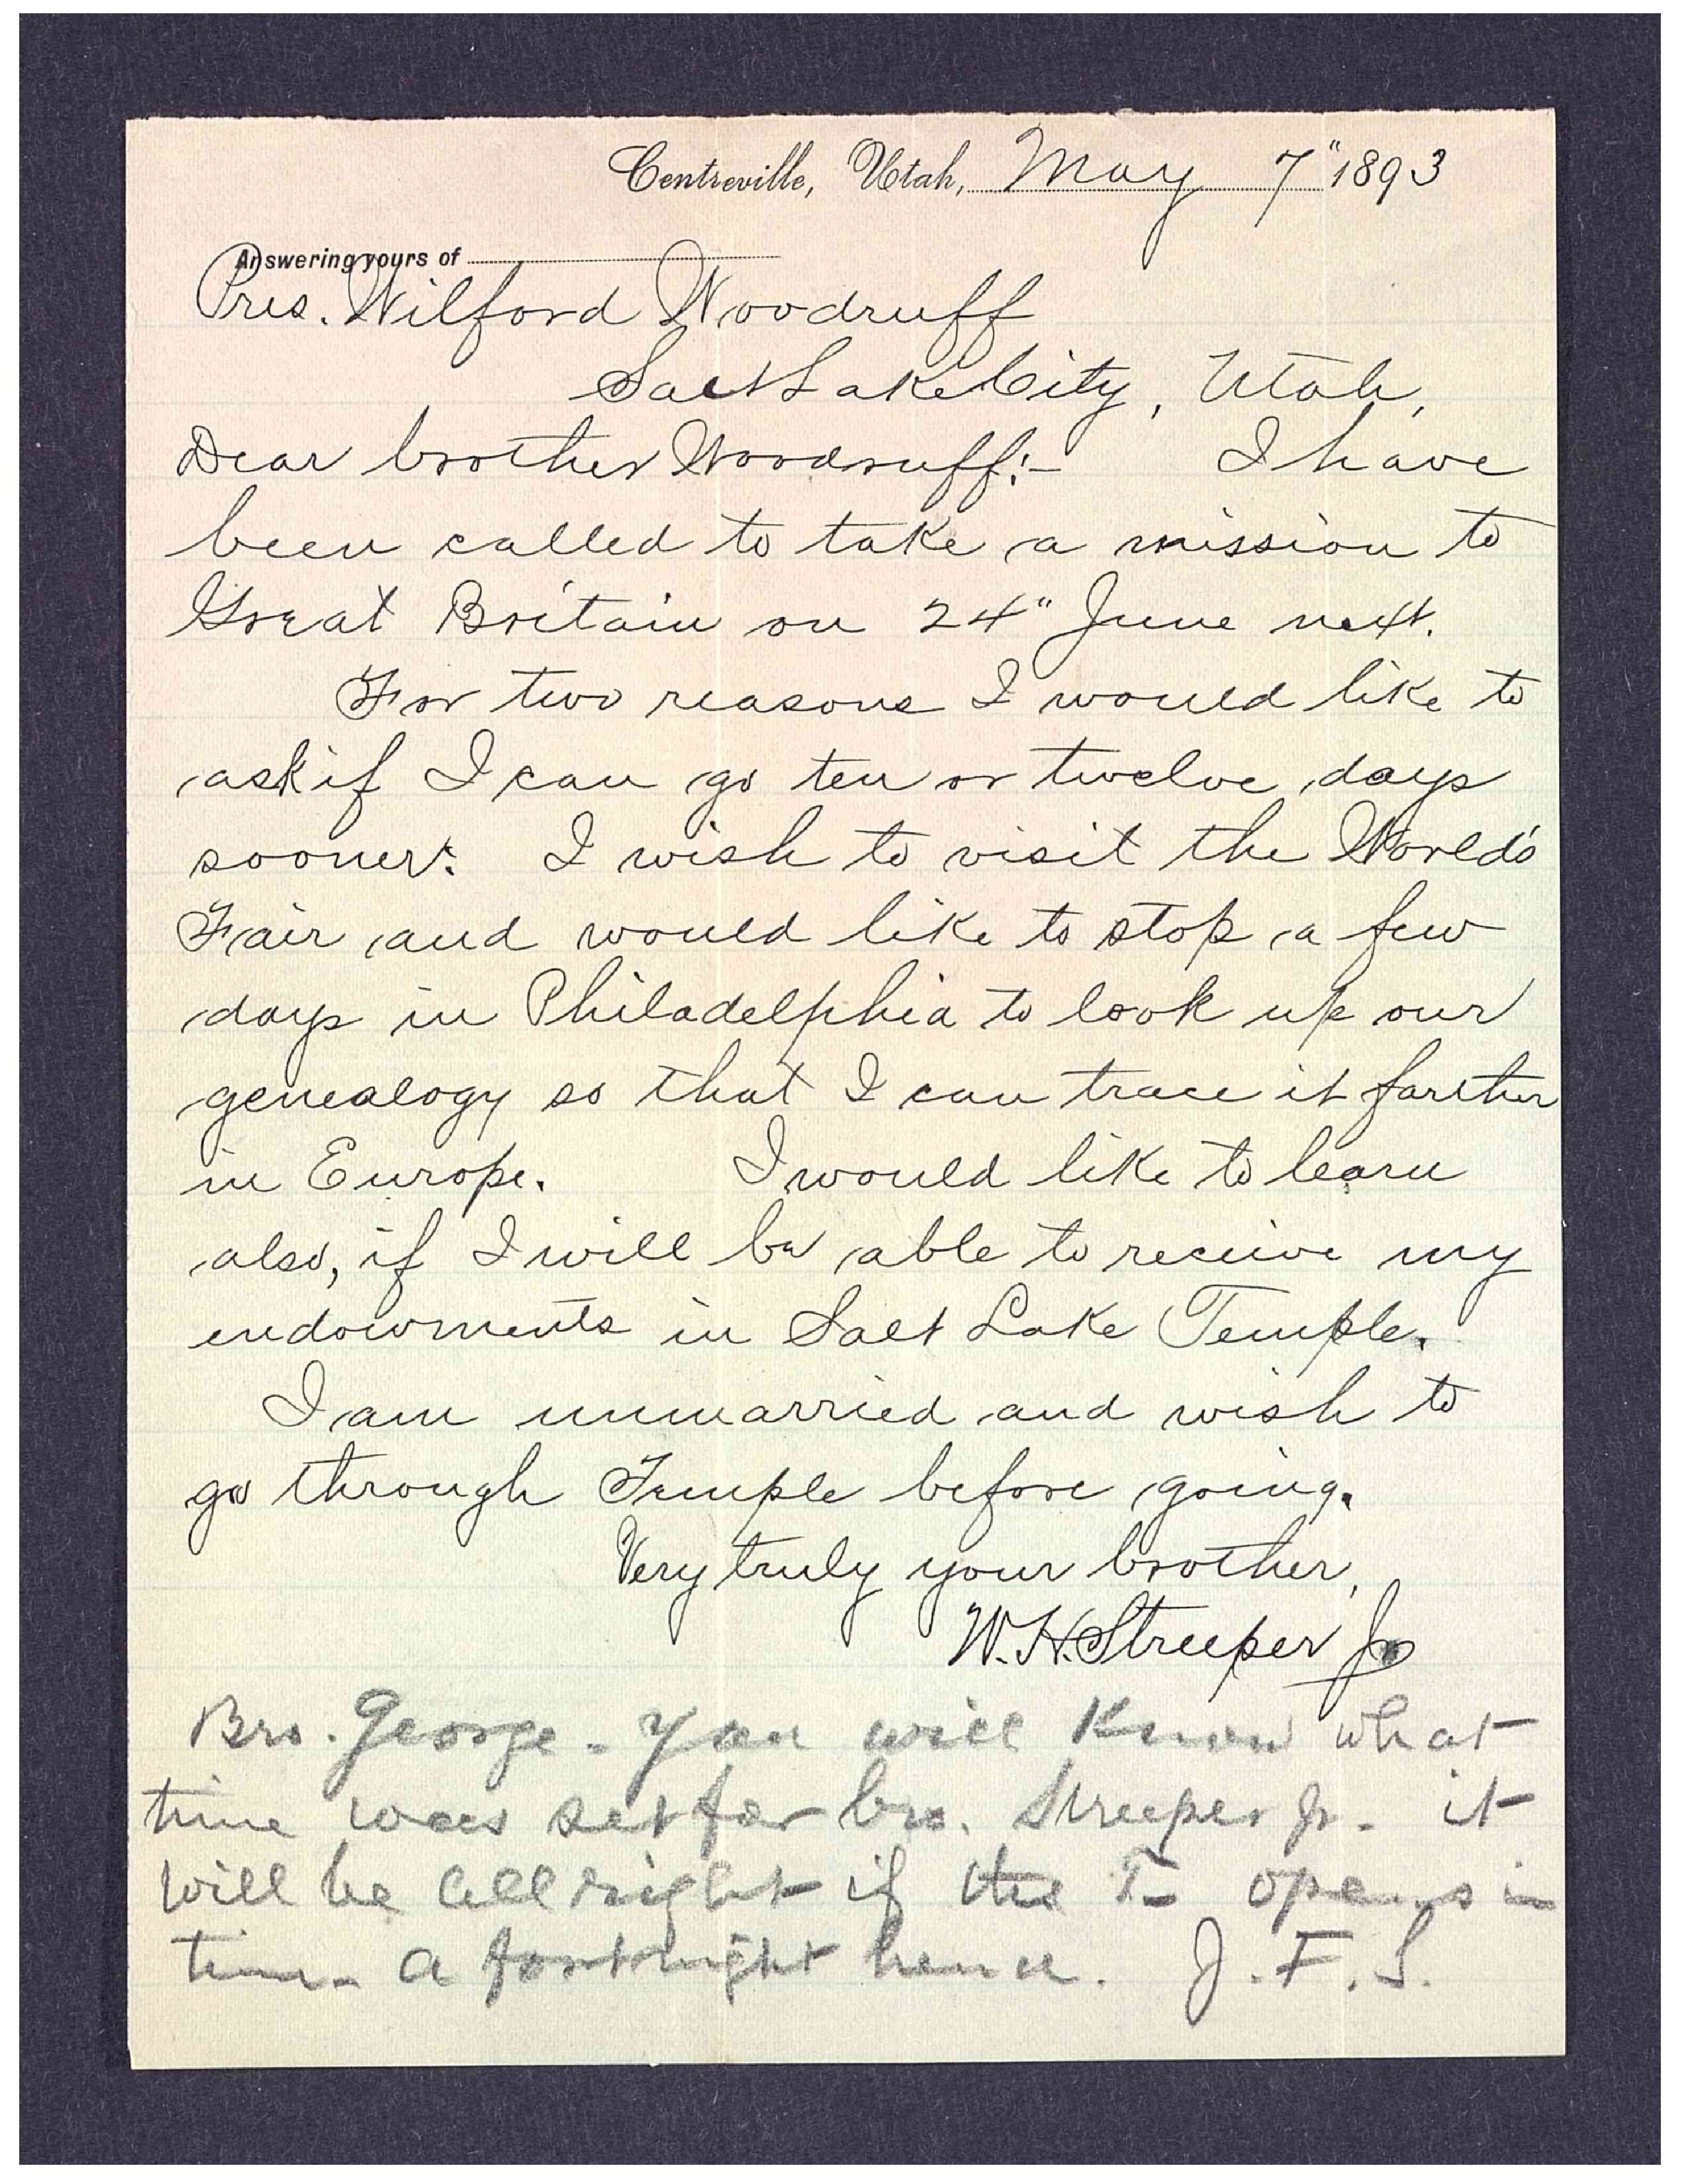 Centreville, Utah, May 7" 1893
Answering yours of
Pres. Wilford Woodruff
Salt Lake City, Utah,
Dear brother Woodruff:- I have
been called to take a mission to
Great Britain on 24" June next.
For two reasons I would like to
ask if I can go ten or twelve days
sooner: I wish to visit the World's
Fair and would like to stop a few
days in Philadelphia to look up our
genealogy so that I can trace it farther
in Europe. I would like to learn
also, if I will be able to receive my
endowments in Salt Lake Temple.
I am unmarried and wish to
go through Temple before going.
Very truly your brother,
W. H. Streeper Jr
Bro. George - You will know what
time was set for bro. Streeper Jr. it
will be all right if the T- opens in
time - a fortnight hence. J. F. S.